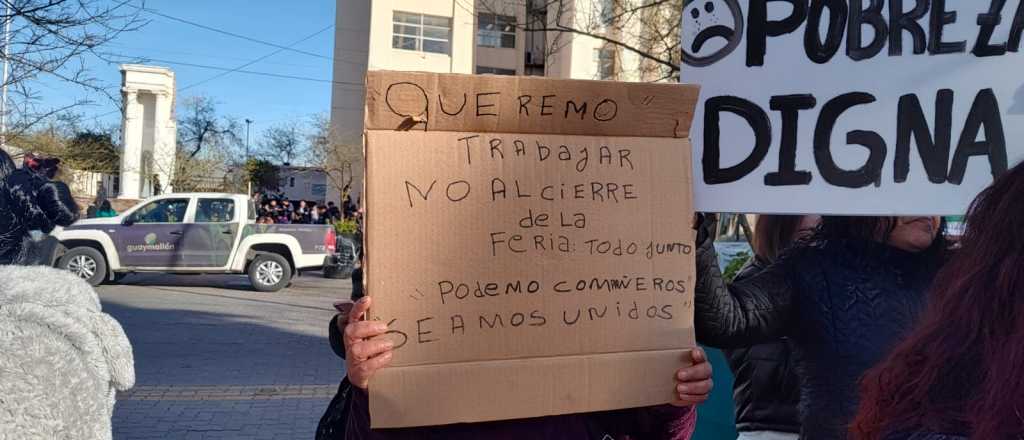 "QUEREMO"
TRabajAR
NO AL CiERRE
de LA
FeRiA: Todo junto
"Podemo COMPAÑEROS"
"SEAMOS UNIDOS"
POBREZA
DIGNA
guaymallén